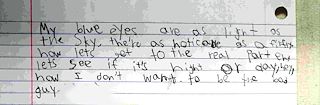 My blue eyes are as light as
the sky, there as noticable as a
now lets get to the real part
lets see if it's night or day,
now I don't want to be the bad
guy.